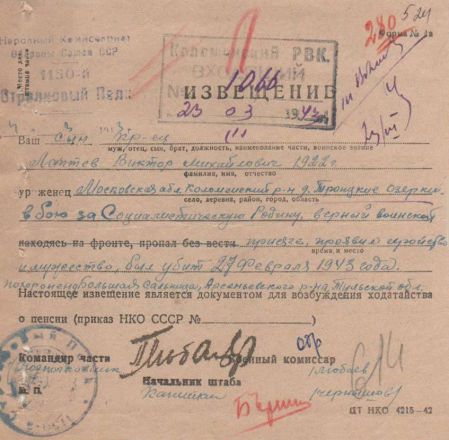 Народный Комиссариат
Обороны Союза ССР
1150-й
Стрелковый Полк
Коломенский РВК.
ВХОДЯЩИЙ
№ 1066
23 03 1943 г.
280
524
Форма № 1в
ИЗВЕЩЕНИЕ
Ваш сын кр-ец
муж, отец, сын, брат, должность, наименование части, воинское звание
Виктор Михайлович 1922 г.
фамилия, имя, отчество
уроженец Московская обл. Коломенский р-н д. Троицкие Озерки
село, деревня, район, город, область
в бою за Социалистическую Родину, верный воинской
находясь на фронте, пропал без вести присяге, проявив геройство
время и место
и мужество, был убит 27 февраля 1943 года.
похоронен Большая Арсеньевского р-на Тульской обл.
Настоящее извещение является документом для возбуждения ходатайства
о пенсии (приказ НКО СССР № )
Командир части
Военный комиссар
Подполковник
М. П.
Начальник штаба
Капитан
(Чернышов)
ЦТ НКО 4215-42